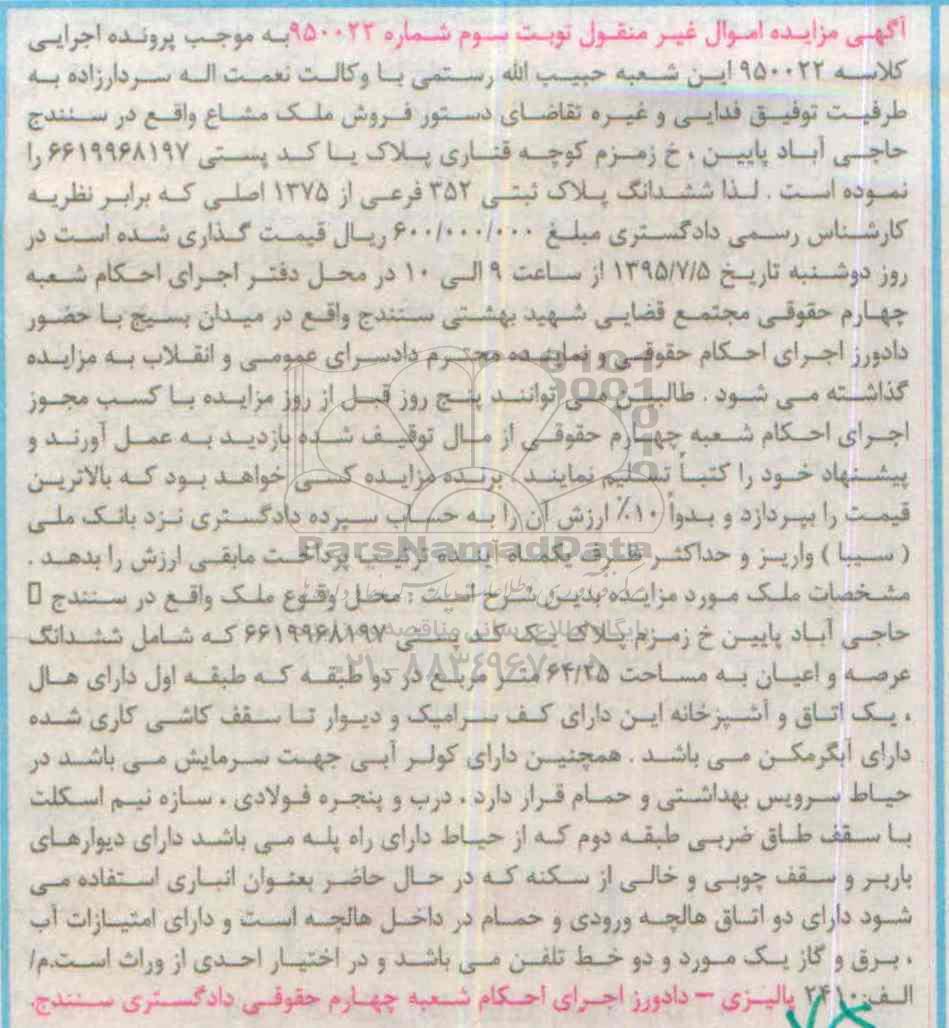 آگهی مزایده اموال غیر منقول نوبت سوم شماره ۹۵۰۰۲۲ به موجب پرونده اجرایی
کلاسه ۹۵۰۰۲۲ این شعبه حبیب الله رستمی با وکالت نعمت اله سردارزاده به
طرفیت توفیق فدایی و غیره تقاضای دستور فروش ملک مشاع واقع در سنندج
حاجی آباد پایین ، خ زمزم کوچه قناری پلاک یا کد پستی ۶۶۱۹۹۶۸۱۹۷ را
نموده است . لذا ششدانگ پلاک ثبتی ۳۵۲ فرعی از ۱۳۷۵ اصلی که برابر نظریه
کارشناس رسمی دادگستری مبلغ ۶۰۰/۰۰۰/۰۰۰ ریال قیمت گذاری شده است در
روز دوشنبه تاریخ ۱۳۹۵/۷/۵ از ساعت ۹ الی ۱۰ در محل دفتر اجرای احکام شعبه
چهارم حقوقی مجتمع قضایی شهید بهشتی سنندج واقع در میدان بسیج با حضور
دادورز اجرای احکام حقوقی و نماینده محترم دادسرای عمومی و انقلاب به مزایده
گذاشته می شود . طالبین می توانند پنج روز قبل از روز مزایده با کسب مجوز
اجرای احکام شعبه چهارم حقوقی از مال توقیف شده بازدید به عمل آورند و
پیشنهاد خود را کتباً تسلیم نمایند . برنده مزایده کسی خواهد بود که بالاترین
قیمت را بپردازد و بدواً ۱۰٪ ارزش آن را به حساب سپرده دادگستری نزد بانک ملی
( سیبا ) واریز و حداکثر ظرف یکماه آینده ترتیب پرداخت مابقی ارزش را بدهد .
مشخصات ملک مورد مزایده بدین شرح است : محل وقوع ملک واقع در سنندج
حاجی آباد پایین خ زمزم پلاک یک کد پستی ۶۶۱۹۹۶۸۱۹۷ که شامل ششدانگ
عرصه و اعیان به مساحت ۶۴/۲۵ متر مربع در دو طبقه که طبقه اول دارای هال
، یک اتاق و آشپزخانه این دارای کف سرامیک و دیوار تا سقف کاشی کاری شده
دارای آبگرمکن می باشد . همچنین دارای کولر آبی جهت سرمایش می باشد در
حیاط سرویس بهداشتی و حمام قرار دارد ، درب و پنجره فولادی ، سازه نیم اسکلت
با سقف طاق ضربی طبقه دوم که از حیاط دارای راه پله می باشد دارای دیوارهای
باربر و سقف چوبی و خالی از سکنه که در حال حاضر بعنوان انباری استفاده می
شود دارای دو اتاق هالچه ورودی و حمام در داخل هالچه است و دارای امتیازات آب
، برق و گاز یک مورد و دو خط تلفن می باشد و در اختیار احدی از وراث است.م/
الف:۲۴۱۰ پالیزی – دادورز اجرای احکام شعبه چهارم حقوقی دادگستری سنندج.
ParsNamadData
۰۲۱-۸۸۳۴۹۶۷۰